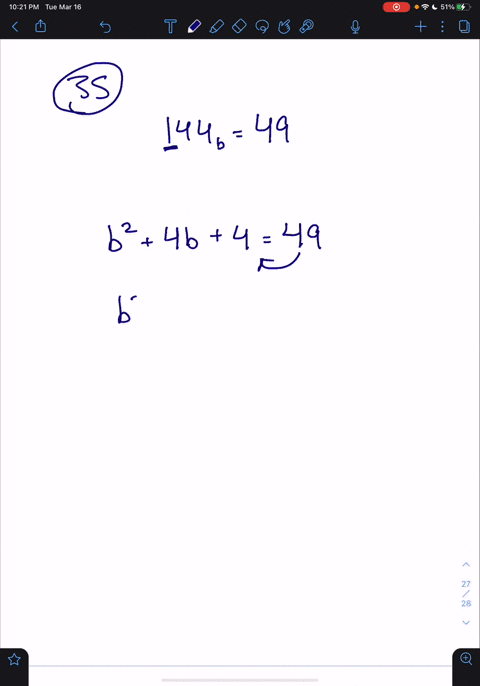 10:21 PM Tue Mar 16
51%
T
35
144b = 49
b² + 4b + 4 = 49
b
27
/
28